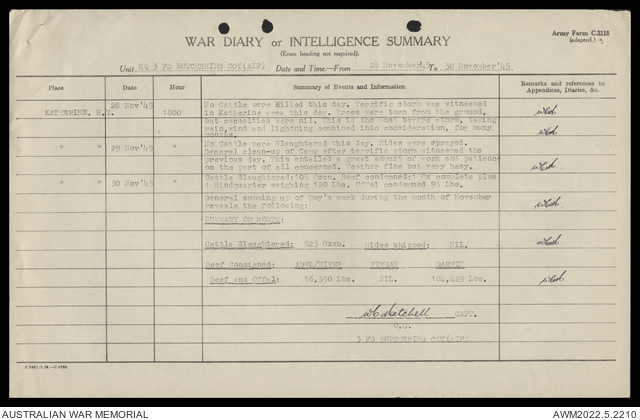 Army Form C.2118
(adapted.)
WAR DIARY or INTELLIGENCE SUMMARY
(Erase heading not required).
Unit HQ 3 FD BUTCHERING COY(AIF) Date and Time.—From 28 November'45 To 30 November'45
Place Date Hour Summary of Events and Information Remarks and references to Appendices, Diaries, &c.
KATHERINE, N.T. 28 Nov'45 1800 No Cattle were killed this day. Terrific storm was witnessed
in Katherine area this day. Trees were torn from the ground,
but casualties were nil. This is the most severe storm, taking
rain, wind and lightning combined into consideration, for many
months.
" " 29 Nov'45 " No Cattle were Slaughtered this day. Hides were sprayed.
General clean-up of Camp after terrific storm witnessed the
previous day. This entailed a great amount of work and patience
on the part of all concerned. Weather fine but very hazy.
" " 30 Nov'45 " Cattle Slaughtered: Oxen. Beef condemned: 1 Ox complete plus
1 Hindquarter weighing 120 lbs. Offal condemned 93 Lbs.
General summing up of Coy's work during the month of November
reveals the following:
SUMMARY OF MONTH:
Cattle Slaughtered: 523 Oxen. Hides shipped: NIL.
Beef Consigned: ADEL/RIVER DARWIN
Beef and Offal: 16,350 Lbs. NIL. 184,429 Lbs.
CAPT.
O.C.
3 FD BUTCHERING COY(AIF)
AUSTRALIAN WAR MEMORIAL
AWM2022.5.2210